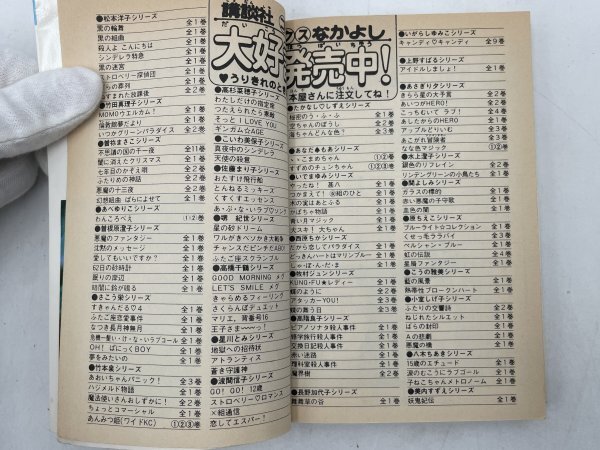 講談社
なかよし
大好
発売中!
だい
はつばいちゅう
♥うりきれのと
本屋さんに注文してね!
●松本洋子シリーズ
黒の輪舞 全1巻
黒の組曲 全1巻
殺人よ こんにちは 全1巻
シンデレラ特急 全1巻
黒の迷宮 全1巻
ストロベリー探偵団 全1巻
の葬列 全1巻
すまされた放課後 全2巻
●竹田真理子シリーズ
MOMOウエルカム! 全1巻
倫敦館夢だより 全1巻
いつかグリーンパラダイス 全2巻
●曽祢まさこシリーズ
不思議の国の千一夜 全11巻
闇に消えたクリスマス 全1巻
七年目のかぞえ唄 全2巻
ふたりめの神話 全2巻
悪魔の十三夜 全2巻
幻想組曲 ばらによせて 全1巻
●あべゆりこシリーズ
わんころべえ ①②巻
●曽根原澄子シリーズ
悪魔のファンタジー 全1巻
沈黙のメッセージ 全1巻
愛してもいいですか? 全1巻
62日の砂時計 全1巻
眠りの岸辺 全1巻
暗闇に鈴が鳴る 全1巻
●さこう栄シリーズ
すきゃんだる♡4 全1巻
ふたご座恋愛事件 全1巻
なつき長月神無月 全1巻
危機一髪・い・け・な・いラブコール 全1巻
OH! ぱにっくBOY 全1巻
夢をみたいの 全1巻
●竹本泉シリーズ
あおいちゃんパニック! 全3巻
ハジメルド物語 全1巻
魔法使いさんおしずかに! 全2巻
ちょっとコマーシャル 全1巻
あんみつ姫(ワイドKC) ①②③巻
●高杉菜穂子シリーズ
わたしだけの指定席
つたえられたら素敵
そっと I LOVE YOU
ギンガム☆AGE
●こいわ美保子シリーズ
真夜中のシンデレラ
天使の殺意
●佐藤まり子シリーズ
おたすけ飛行船
とんねるミッキーズ
くすくすエッセンス
あ・ぶ・な・いラブハンター
シリーズ
星の砂ドリーム
ワルがきペソかき大戦争
チャンスだピンチだABO
ふたご座スクランブル
●高橋千鶴シリーズ
GOOD MORNING メグ
LET'S SMILE メグ
きゃらめるフィーリング
さくらんぼデュエット
マリエ、背番号16
王子さま〜〜〜っ!
●星川とみシリーズ
地獄への招待状
アトランティス
蒼き守護神
●波間信子シリーズ
GO! GO! 12歳
ストロベリー♡ロマンス
×組通信
恋してエスパー!
●たかなししずえシリーズ
秘密のう・ふ・ふ 全1巻
空ちゃんのぼうし 全1巻
海ちゃんどんな色? 全1巻
●あなだ♠もあシリーズ
っ♪こまめちゃん ①②巻
すずめのチュンちゃん ①②③巻
●いでまゆみシリーズ
やったね! 甚八 全1巻
かがやいて!㊙組のひと 全1巻
木の実はあとふる 全1巻
かぼちゃ物語 全1巻
青い月マジック 全1巻
大スキ! 大ちゃん 全1巻
●西原ちかシリーズ
だから恋してパラダイス 全1巻
どっきんハートはマリンブルー 全1巻
し・ゃ・ぼ・んだ・ま 全1巻
●牧村ジュンシリーズ
KUNG-FU★レディー 全1巻
蝶のように 全2巻
アタッカーYOU! 全3巻
蝶の舞う日 全3巻
●高階良子シリーズ
ピアノソナタ殺人事件 全1巻
修学旅行殺人事件 全1巻
交換日記殺人事件 全1巻
赤い迷路 全1巻
理科室殺人事件 全1巻
魔界樹 全2巻
●長野加代子シリーズ
舞舞草の谷 全1巻
●いがらしゆみこシリーズ
キャンディ♡キャンディ 全9巻
●上野すばるシリーズ
アイドルしましょ! 全1巻
●あさぎり夕シリーズ
きらら星の大予言 全2巻
あいつがHERO! 全2巻
こっちむいて ラブ! 全4巻
あしたからのHERO 全1巻
アップルどりいむ 全3巻
あこがれ冒険者 全3巻
なな色マジック ①②巻
●水上澄子シリーズ
銀色のリフレイン 全2巻
リンデングリーンの小鳥たち 全1巻
●関よしみシリーズ
ガラスの標的 全1巻
赤い悪魔の子守歌 全1巻
血色の闇 全1巻
●原ちえこシリーズ
ブルーライト☆コレクション 全1巻
くせっ毛ララバイ 全3巻
ペルシャン・ブルー 全1巻
虹の伝説 全4巻
星陽ファンタジー 全1巻
●こうの雅美シリーズ
藍の風景 全1巻
熱帯性ブロークンハート 全1巻
●小室しげ子シリーズ
ふたりの交響詩 全2巻
ねじれたシルエット 全1巻
ばらの封印 全1巻
Aの悲劇 全1巻
悪魔の橋 全1巻
●八木ちあきシリーズ
15歳のエチュード 全2巻
涙のむこうにラブゴール 全1巻
子ねこちゃんメトロノーム 全1巻
●美内すずえシリーズ
妖鬼妃伝 全1巻